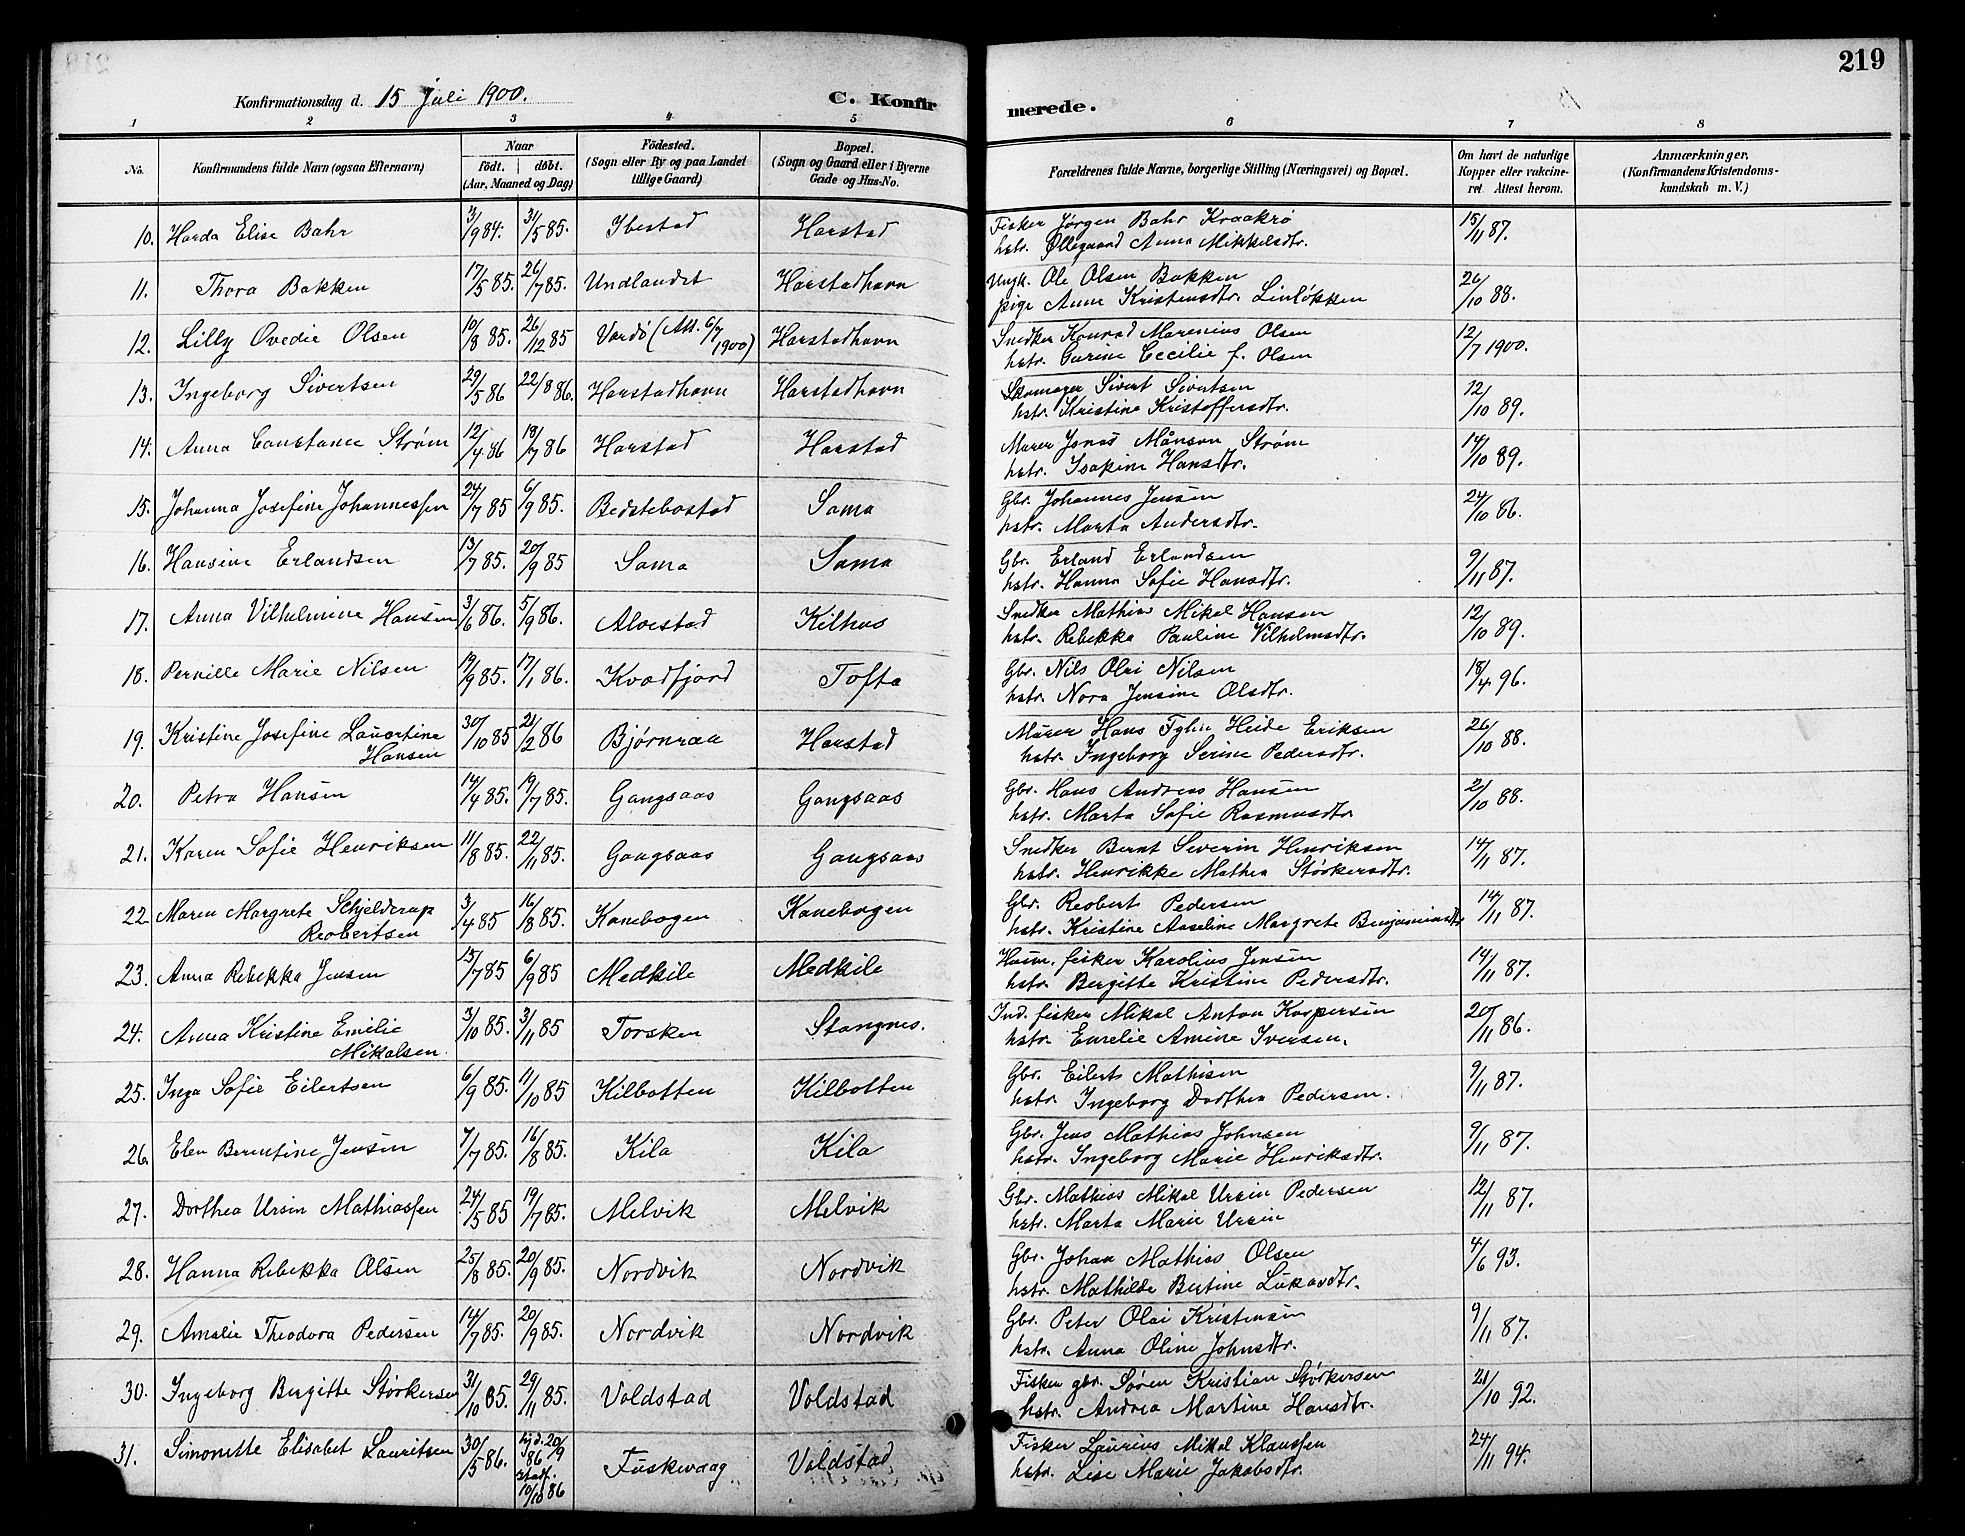 219
Konfirmationsdag d. 15 Juli 1900. C. Konfirmerede.
1 2 3 4 5 6 7 8
No. Konfirmandens fulde Navn (ogsaa Efternavn) Naar Födt. döbt. (Aar, Maaned og Dag) Födested. (Sogn eller By og paa Landet tillige Gaard) Bopæl. (Sogn og Gaard eller i Byerne Gade og Hus-No. Forældrenes fulde Navne, borgerlige Stilling (Næringsvei) og Bopæl. Om havt de naturlige Kopper eller vakcineret. Attest herom. Anmærkninger. (Konfirmandens Kristendomskundskab m. V.)
10. Harda Elise Bahr 3/9 84. 31/5 85. Ibestad Harstad Fisker Jørgen Bahr Kraakrø 15/11 87.
hstr. Øllegaard Anna Mikkelsdtr.
11. Thora Bakken 17/5 85. 26/7 85. Undlandet Harstadhavn Ungk. Ole Olsen Bakken 26/10 88.
pige Anne Kristensdtr. Linløkken
12. Lilly Ovedie Olsen 10/8 85. 26/12 85 Vardö (Att. 6/7 1900) Harstadhavn Snedker Konrad Marenius Olsen 12/7 1900.
hstr. Gurine Cecilie f. Olsen
13. Ingeborg Sivertsen 29/5 86 22/8 86. Harstadhavn Harstadhavn Skomager Sivert Sivertsen 12/10 89.
hstr. Kristine Kristoffersdtr.
14. Anna Constance Strøm 12/4 86 18/7 86 Harstad Harstad Murer Jonas Månson Strøm 14/10 89.
hstr. Isakine Hansdtr.
15. Johanna Josefine Johannessen 24/7 85 6/9 85. Bedstebostad Sama Gbr. Johannes Jensen 24/10 86.
hstr. Marta Andersdtr.
16. Hansine Erlandsen 13/7 85. 20/9 85 Sama Sama Gbr. Erland Erlandsen 9/11 87.
hstr. Hanna Sofie Hansdtr.
17. Anna Vilhelmine Hansen 3/6 86. 5/9 86. Alvestad Kilhus Snedker Mathias Mikal Hansen 12/10 89.
hstr. Rebekka Pauline Vilhelmsdtr.
18. Pernille Marie Nilsen 19/9 85. 17/1 86. Kvædfjord Tofta Gbr. Nils Olai Nilsen 18/4 96.
hstr. Nora Jensine Olsdtr.
19. Kristine Josefine Lauertine Hansen 30/10 85 21/2 86 Bjørnraa Harstad Murer Hans Tylin Heide Eriksen 26/10 88.
hstr. Ingeborg Serine Pedersdtr.
20. Petra Hansen 14/4 85. 19/7 85. Gangsaas Gangsaas Gbr. Hans Andreas Hansen 2/10 88.
hstr. Marta Sofie Rasmusdtr.
21. Karen Sofie Henriksen 11/8 85. 22/11 85. Gangsaas Gangsaas Snedker Bernt Severin Henriksen 14/11 87.
hstr. Henrikke Mathea Størkersdtr.
22. Maren Margrete Schjelderup Reobertsen 3/4 85 16/8 85. Kanebogen Kanebogen Gbr. Reobert Pedersen 14/11 87.
hstr. Kristine Aaseline Margrete Benjaminsdtr
23. Anna Rebekka Jensen 15/7 85 6/9 85 Medkile Medkile Husm. fisker Karolius Jensen 14/11 87.
hstr. Bergitte Kristine Pedersdtr.
24. Anna Kristine Emilie Mikalsen. 3/10 85. 3/11 85 Torsken Stangnes. Ind. fisker Mikal Anton Kaspersen 20/11 86.
hstr. Emelie Amine Iversen.
25. Inga Sofie Eilertsen 6/9 85. 11/10 85 Kilbotten Kilbotten Gbr. Eilert Mathisen 9/11 87.
hstr. Ingeborg Dorthea Pedersen.
26. Elen Berentine Jensen 7/7 85. 16/8 85. Kila Kila Gbr. Jens Mathias Johnsen 9/11 87.
hstr. Ingeborg Marie Henriksdtr.
27. Dorthea Ursin Mathiassen 24/5 85 19/7 85. Melvik Melvik Gbr. Mathias Mikal Ursin Pedersen 12/11 87.
hstr. Marta Marie Ursin
28. Hanna Rebekka Olsen 25/8 85. 20/9 85. Nordvik Nordvik Gbr. Johan Mathias Olsen 4/6 93.
hstr. Mathilde Bertine Lukasdtr.
29. Amalie Theodora Pedersen 14/7 85. 20/9 85. Nordvik Nordvik Gbr. Peter Olai Kristensen 9/11 87.
hstr. Anna Oline Johnsdtr.
30. Ingeborg Bergitte Størkersen 31/10 85. 29/11 85. Voldstad Voldstad Fisker gbr. Søren Kristian Størkersen 21/10 92.
hstr. Andrea Martine Hansdtr.
31. Simonette Elisabet Lauritsen 30/5 86. hjd. 20/9 86 stadf. 10/10 86 Fuskevaag Voldstad Fisker Laurius Mikal Klaussen 24/11 94.
hstr. Lise Marie Jakobsdtr.